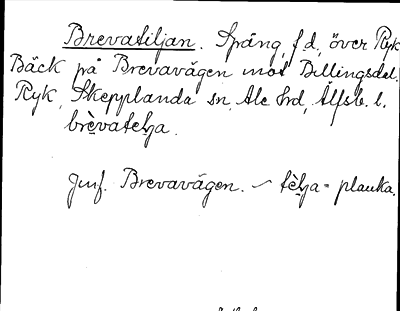 Brevatiljan. Spång, f.d., över Ryk
Bäck på Brevavägen mot Dillingsdal.
Ryk, Skepplanda sn, Ale hrd, Älfsb. l.
brèvatelja.
Jmf. Brevavägen. ~ tèlja = planka.